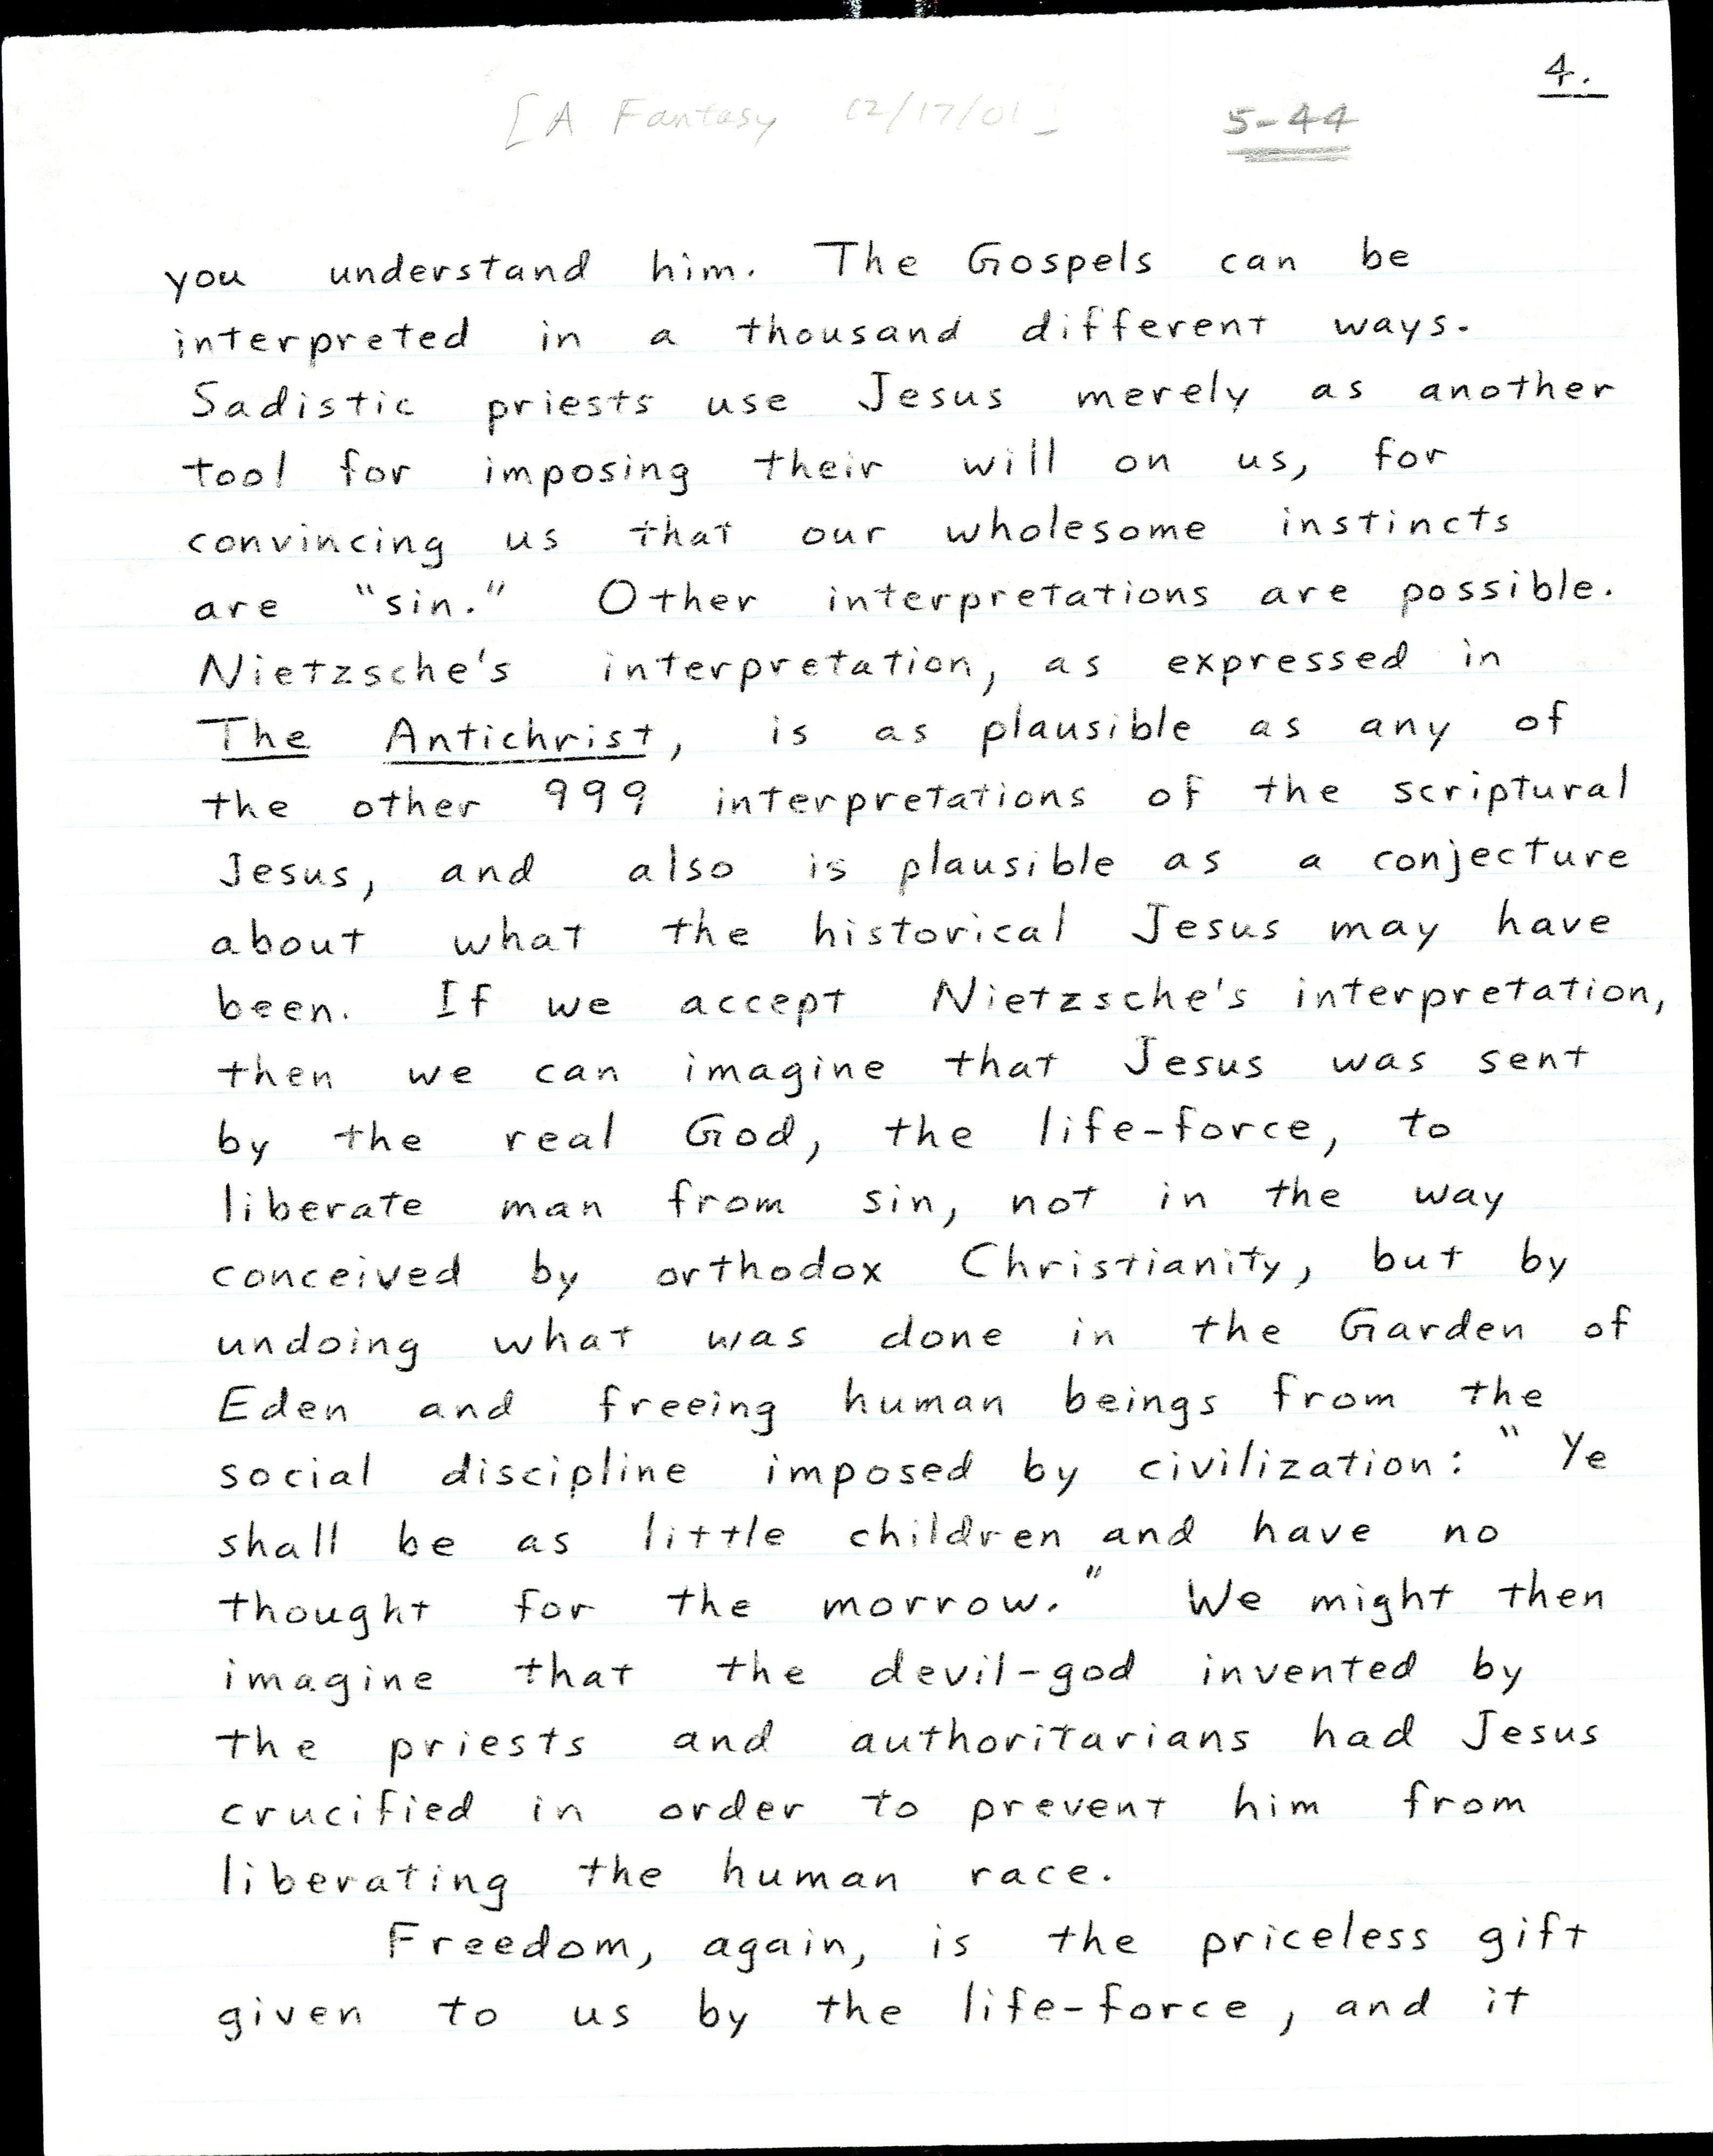 4.
[A Fantasy 12/17/01]
5-44
you understand him. The Gospels can be
interpreted in a thousand different ways.
Sadistic priests use Jesus merely as another
tool for imposing their will on us, for
convincing us that our wholesome instincts
are "sin." Other interpretations are possible.
Nietzsche's interpretation, as expressed in
The Antichrist, is as plausible as any of
the other 999 interpretations of the scriptural
Jesus, and also is plausible as a conjecture
about what the historical Jesus may have
been. If we accept Nietzsche's interpretation,
then we can imagine that Jesus was sent
by the real God, the life-force, to
liberate man from sin, not in the way
conceived by orthodox Christianity, but by
undoing what was done in the Garden of
Eden and freeing human beings from the
social discipline imposed by civilization: "Ye
shall be as little children and have no
thought for the morrow." We might then
imagine that the devil-god invented by
the priests and authoritarians had Jesus
crucified in order to prevent him from
liberating the human race.
Freedom, again, is the priceless gift
given to us by the life-force, and it